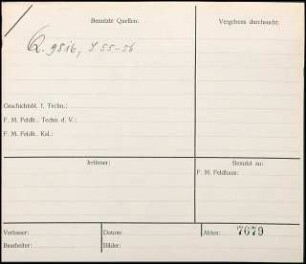 Benutzte Quellen:
Vergebens durchsucht:
Q. 9816, S. 55-56
Geschichtsbl. f. Techn.:
F. M. Feldh., Techn. d. V.:
F. M. Feldh., Kal.:
Irrtümer:
Benutzt zu:
F. M. Feldhaus:
Verfasser:
Datum:
Akten: 7679
Bearbeiter:
Bilder: